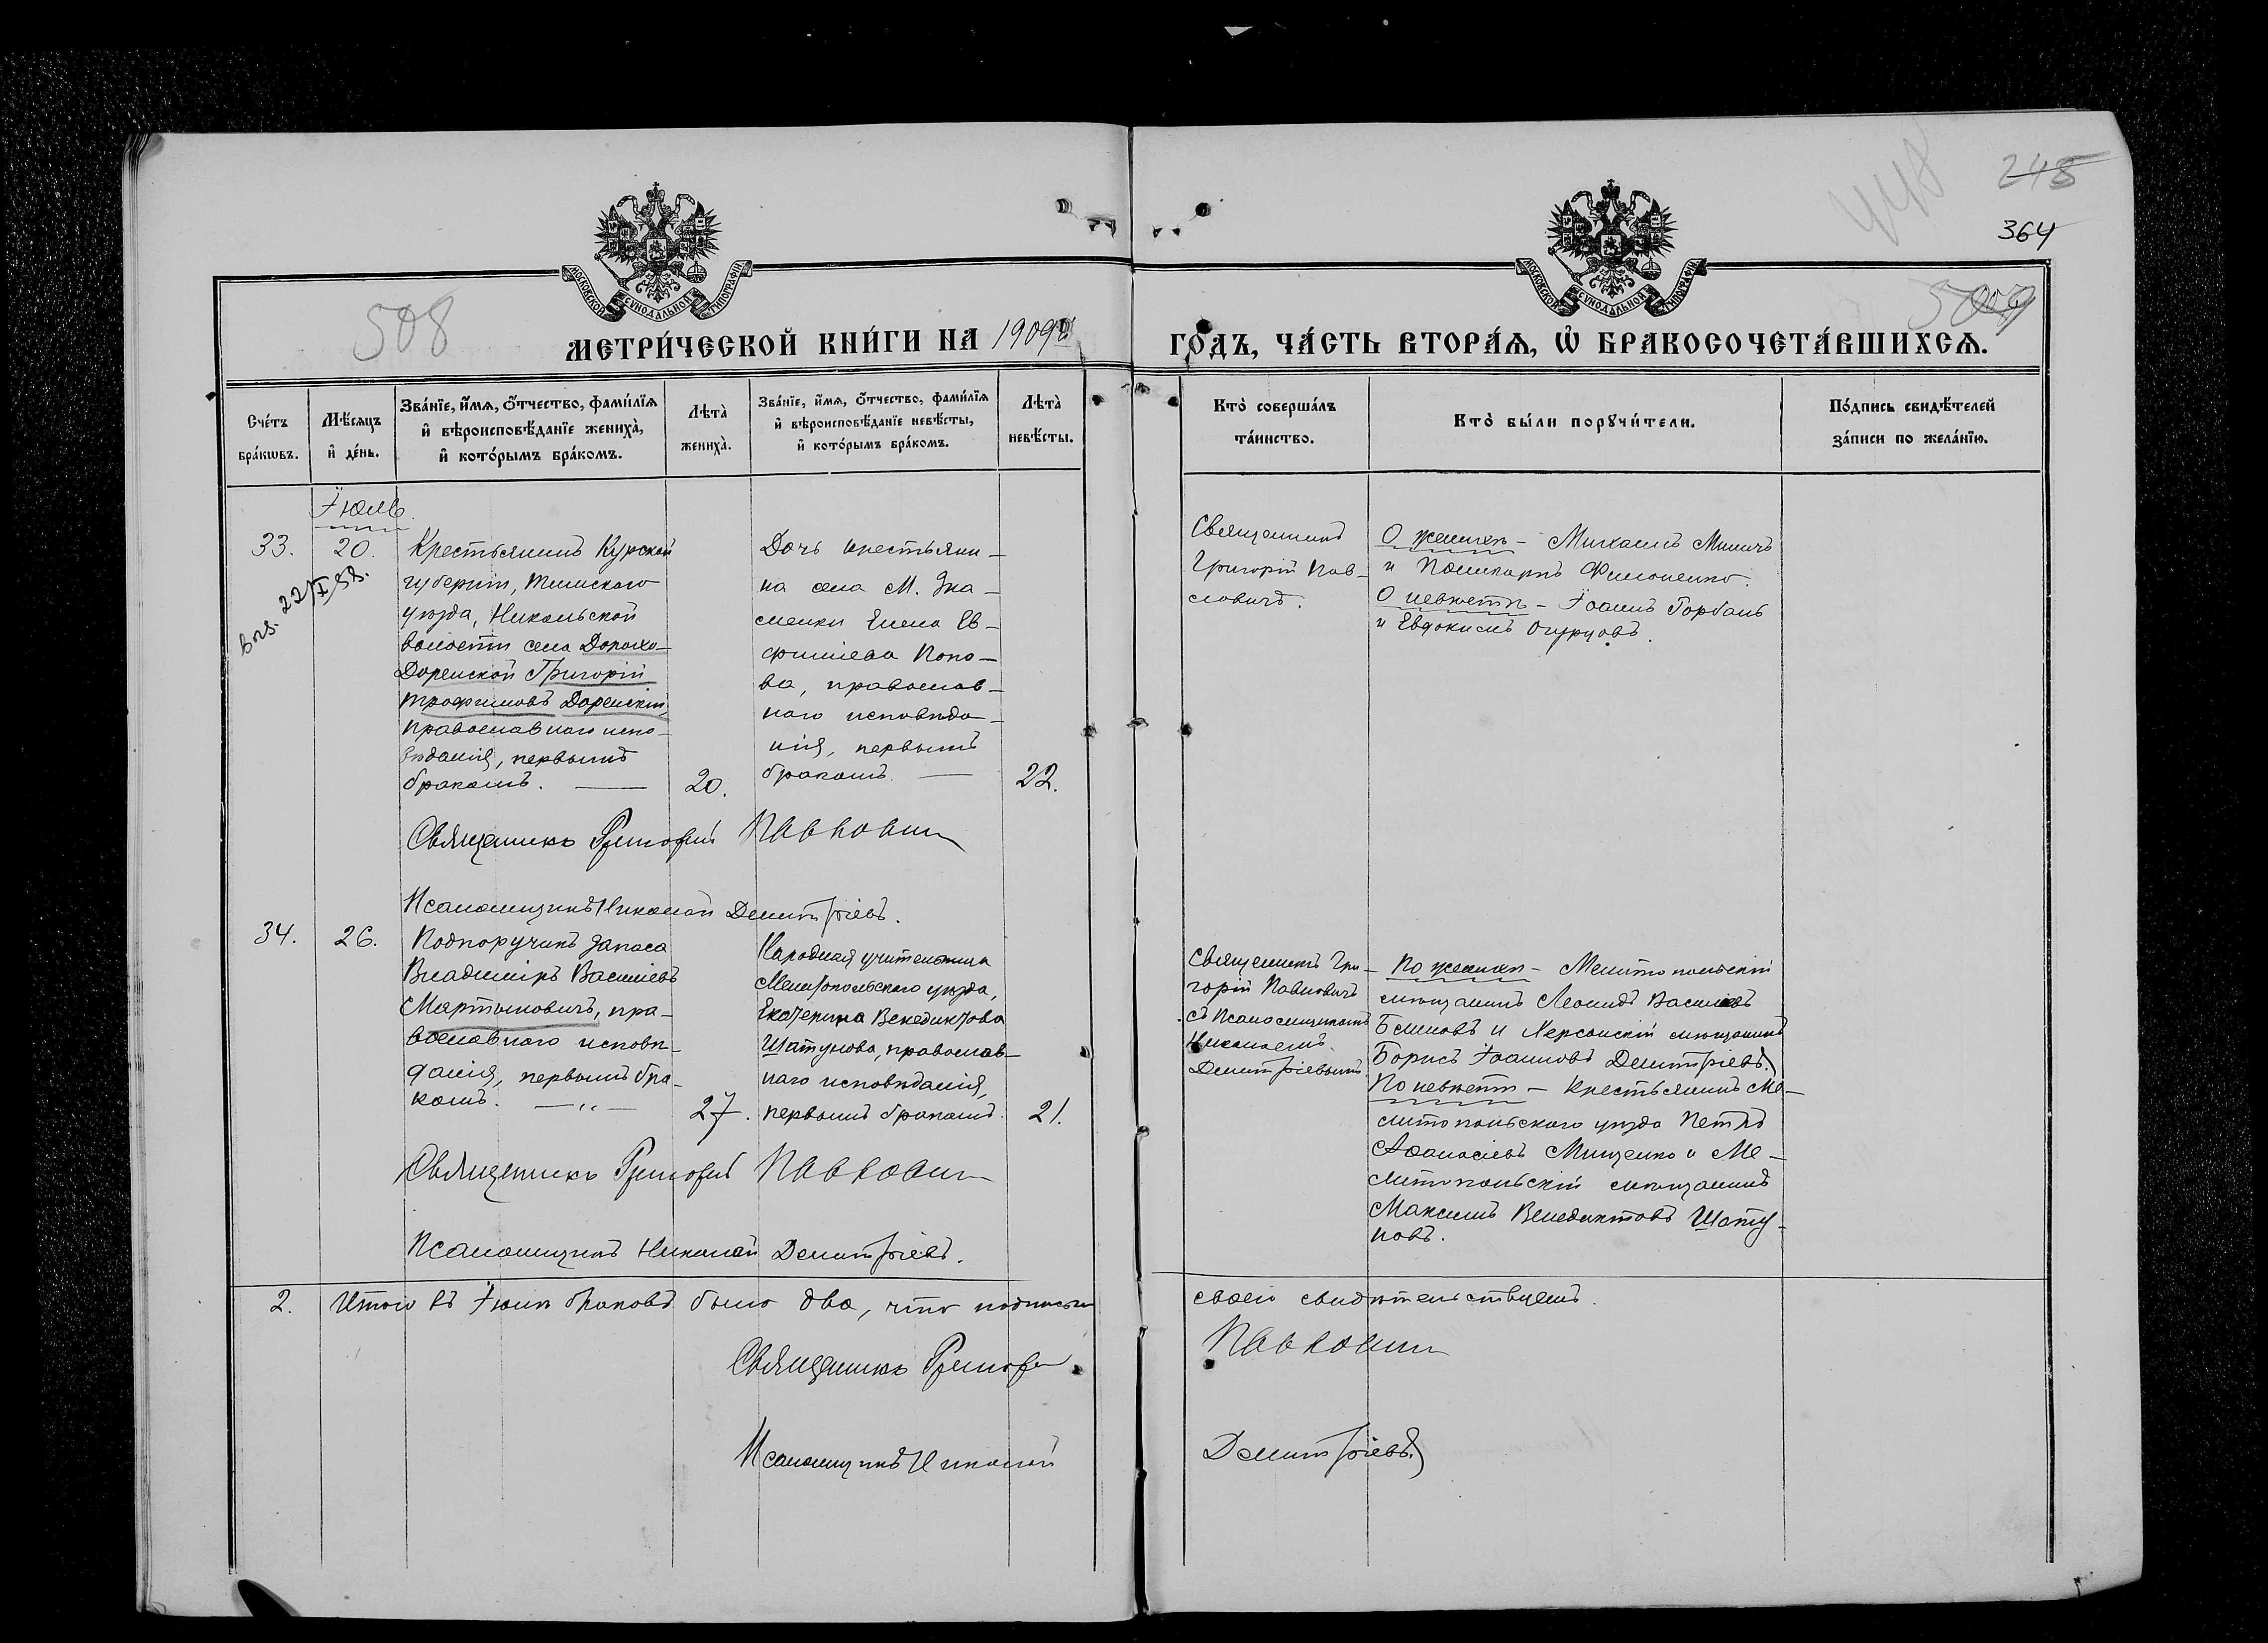 448
248
364
508
500
МОСКОВСКОЙ СѴНОДАЛЬНОЙ ТИПОГРАФІИ
МОСКОВСКОЙ СѴНОДАЛЬНОЙ ТИПОГРАФІИ
МЕТРИ́ЧЕСКОЙ КНИ́ГИ НА 1909й
ГОДЪ, ЧА́СТЬ ВТОРА́Ѧ, Ѡ҆ БРАКОСОЧЕТА́ВШИХСѦ.
Сче́тъ бра́кѡвъ.
Мѣ́сѧцъ и҆ де́нь.
Зва́нїе, и҆́мѧ, ѻ҆́тчество, фами́лїѧ и҆ вѣроисповѣ́данїе жениха̀, и҆ кото́рымъ бра́комъ.
Лѣта̀ жениха̀.
Зва́нїе, и҆́мѧ, ѻ҆́тчество, фами́лїѧ и҆ вѣроисповѣ́данїе невѣ́сты, и҆ кото́рымъ бра́комъ.
Лѣта̀ невѣ́сты.
Кто̀ соверша́лъ та́инство.
Кто̀ бы́ли порꙋчи́тели.
По́дпись свидѣ́телей за́писи по жела́нїю.
Іюль.
33.
20.
22/I 58.
Крестьянинъ Курской
губерніи, Тимскаго
уѣзда, Никольской
волости села
Доренской Григорій
Трофимовъ Доренскій,
православнаго испо-
вѣданія, первымъ
бракомъ. —
20.
Дочь крестьяни-
на села М. Зна-
менки Елена Ев-
фиміева Попо-
ва, православ-
наго исповѣда-
нія, первымъ
бракомъ. —
22.
Священникъ
Григорій Пав-
ловичъ.
О женихѣ – Михаилъ Миничъ
и Поликарпъ Филоненко.
О невѣстѣ – Іоаннъ Горбань
и Евдокимъ Огурцовъ.
Священникъ Григорій Павловичъ
Псаломщикъ Николай Димитріевъ.
34.
26.
Подпоручикъ запаса
Владиміръ Василіевъ
Мартыновичъ, пра-
вославнаго исповѣ-
данія, первымъ бра-
комъ. — „ —
27.
Народная учительница
Мелитопольскаго уѣзда,
Екатерина Венедиктова
Шатунова, православ-
наго исповѣданія,
первымъ бракомъ.
21.
Священникъ Гри-
горій Павловичъ
съ Псаломщикомъ
Николаемъ
Димитріевымъ.
По женихѣ – Мелитопольскій
мѣщанинъ Леонидъ Василіевъ
и Херсонскій мѣщанинъ
Борисъ Іоанновъ Димитріевъ.
По невѣстѣ – Крестьянинъ Ме-
литопольскаго уѣзда Петръ
Аѳанасіевъ Мищенко и Ме-
литопольскій мѣщанинъ
Максимъ Венедиктовъ Шату-
новъ.
Священникъ Григорій Павловичъ
Псаломщикъ Николай Димитріевъ.
2. Итого въ Іюлѣ браковъ было два, что подписью
своею свидѣтельствуемъ.
Священникъ Григорій Павловичъ
Псаломщикъ Николай Димитріевъ